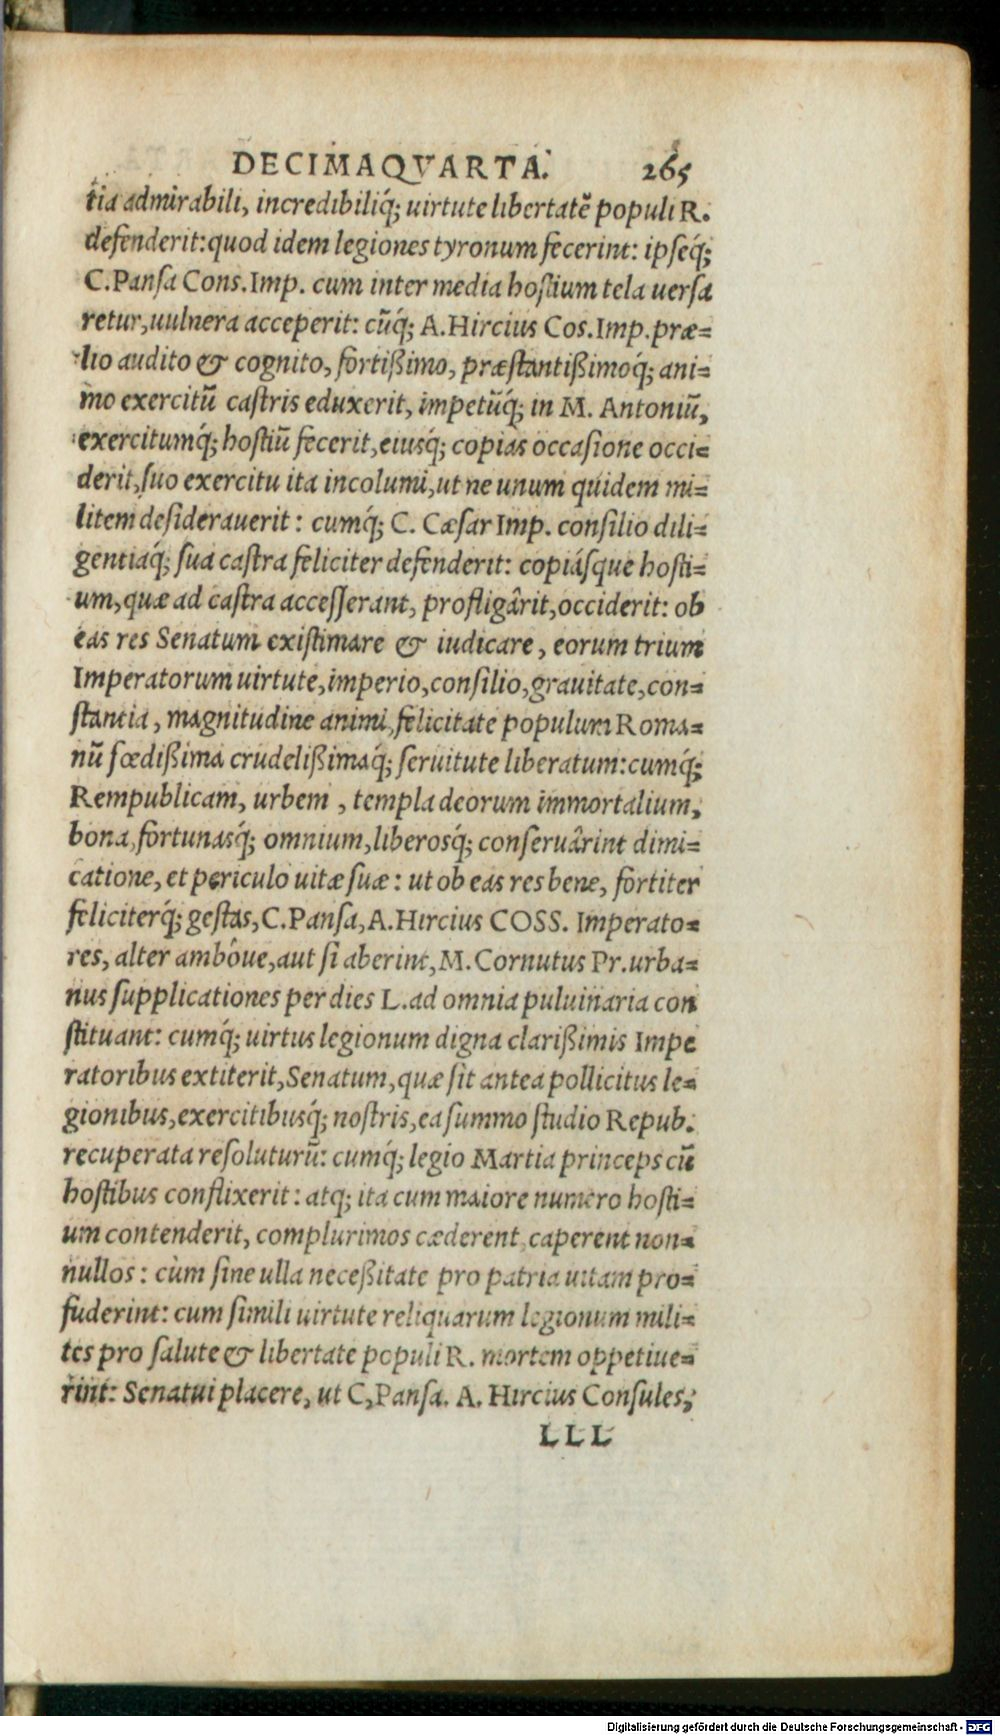 DECIMAQVARTA. 265
tia admirabili, incredibiliq́; uirtute libertatẽ populi R.
defenderit: quod idem legiones tyronum fecerint: ipseq́;
C. Pansa Cons. Imp. cum inter media hostium tela uersa
retur, uulnera acceperit: cũq́; A. Hircius Cos. Imp. præ-
lio audito & cognito, fortißimo, præstantißimoq́; ani-
mo exercitũ castris eduxerit, impetũq́; in M. Antoniũ,
exercitumq́; hostiũ fecerit, eiusq́; copias occasione occi-
derit, suo exercitu ita incolumi, ut ne unum quidem mi-
litem desiderauerit: cumq́; C. Cæsar Imp. consilio dili-
gentiaq́; sua castra feliciter defenderit: copiásque hosti-
um, quæ ad castra accesserant, profligârit, occiderit: ob
eas res Senatum existimare & iudicare, eorum trium
Imperatorum uirtute, imperio, consilio, grauitate, con-
stantia, magnitudine animi, felicitate populum Roma-
nũ fœdißima crudelißimaq́; seruitute liberatum: cumq́;
Rempublicam, urbem, templa deorum immortalium,
bona, fortunasq́; omnium, liberosq́; conseruârint dimi-
catione, et periculo uitæ suæ: ut ob eas res bene, fortiter
feliciterq́; gestas, C. Pansa, A. Hircius COSS. Imperato-
res, alter ambôue, aut si aberint, M. Cornutus Pr. urba-
nus supplicationes per dies L. ad omnia puluinaria con
stituant: cumq́; uirtus legionum digna clarißimis Impe
ratoribus extiterit, Senatum, quæ sit antea pollicitus le-
gionibus, exercitibusq́; nostris, ea summo studio Repub.
recuperata resoluturũ: cumq́; legio Martia princeps cũ
hostibus conflixerit: atq; ita cum maiore numero hosti-
um contenderit, complurimos cæderent, caperent non-
nullos: cùm sine ulla neceßitate pro patria uitam pro-
fuderint: cum simili uirtute reliquarum legionum mili-
tes pro salute & libertate populi R. mortem oppetiue-
rint: Senatui placere, ut C, Pansa. A. Hircius Consules,
LLL
Digitalisierung gefördert durch die Deutsche Forschungsgemeinschaft - DFG